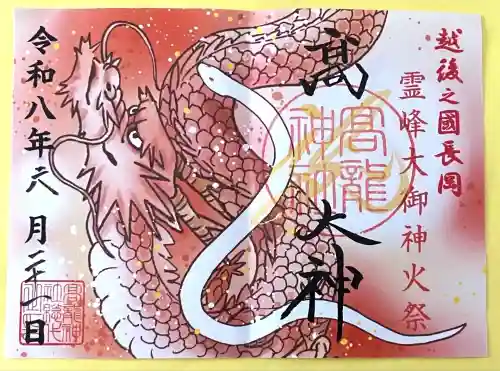 越後之國長岡
霊峰大御神火祭
高龍
神社
髙 大神
令和八年六月二十一日